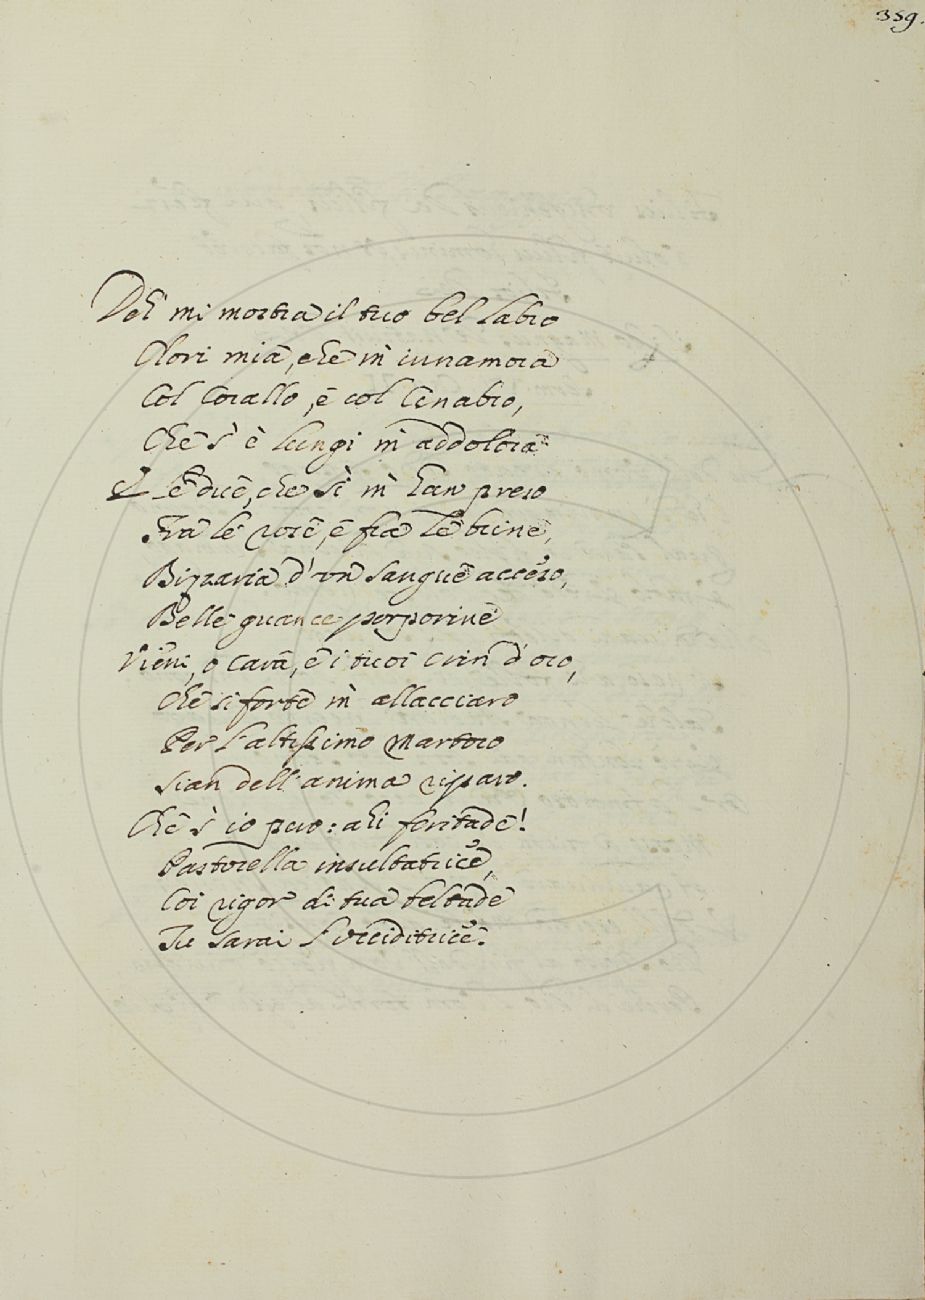 359.
Deh mi mostra il tuo bel labro
Clori mia, che m' innamora
Col Corallo, e col Cenabro,
Che s' è lungi m' addolora
E le due, che sì m' han preso
Fra le rose, e fra le brine,
Bizzaria d' un sangue acceso,
Belle guance porporine
Vieni, o cara, e i tuoi crin d' oro,
Che si forte m' allacciaro
Per l' altissimo Martoro
Sian dell' anima riparo.
Che s' io pero: ahi feritade!
Pastorella insultatrice,
Coi rigor di tua beltade
Tu sarai l' vcciditrice.